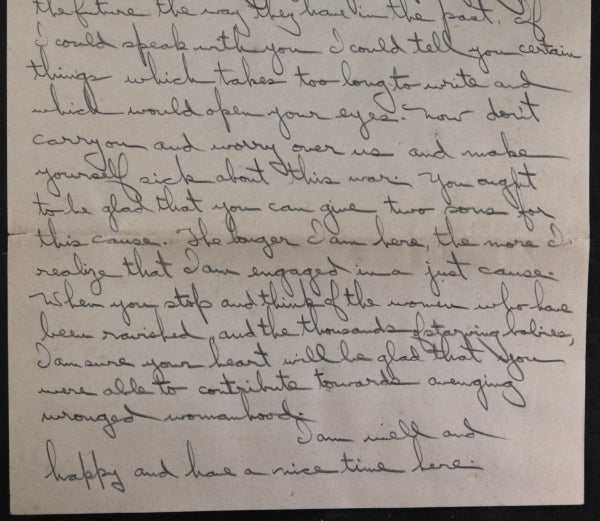 the future the way they have in the past. If
I could speak with you I could tell you certain
things which takes too long to write and
which would open your eyes. Now don't
carry on and worry over us and make
yourself sick about this war. You ought
to be glad that you can give two sons for
this cause. The longer I am here, the more I
realize that I am engaged in a just cause.
When you stop and think of the women who have
been ravished, and the thousands of starving babies,
I am sure your heart will be glad that you
were able to contribute towards avenging
wronged womanhood.
I am well and
happy and have a nice time here.